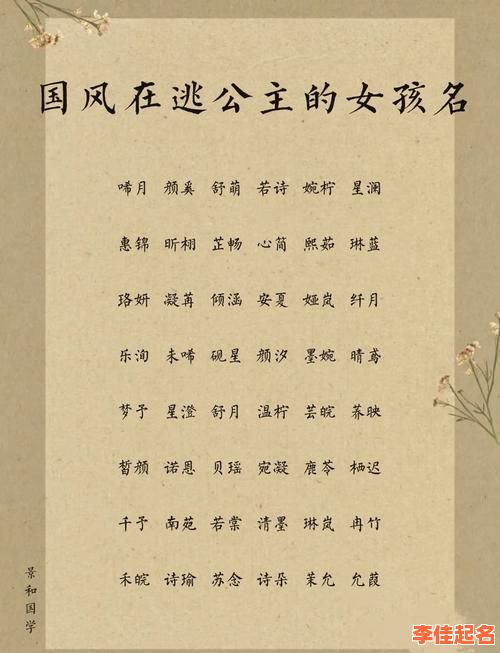 国风在逃公主的女孩名
唏月 颜奚 舒萌 若诗 婉柠 星澜
惠锦 昕栩 芷畅 心简 熙茹 琳蓝
珞妍 凝苒 倾涵 安夏 娅岚 纤月
乐洵 未唏 砚星 颜汐 墨婉 晴鸢
梦予 星澄 舒月 温柠 芸皖 荞映
皙颜 诺恩 贝瑶 宛凝 鹿苓 栖迟
千予 南苑 若棠 清墨 琳岚 冉竹
禾皖 诗瑜 苏念 诗朵 茉允 允葭
景和国学
李佳起名